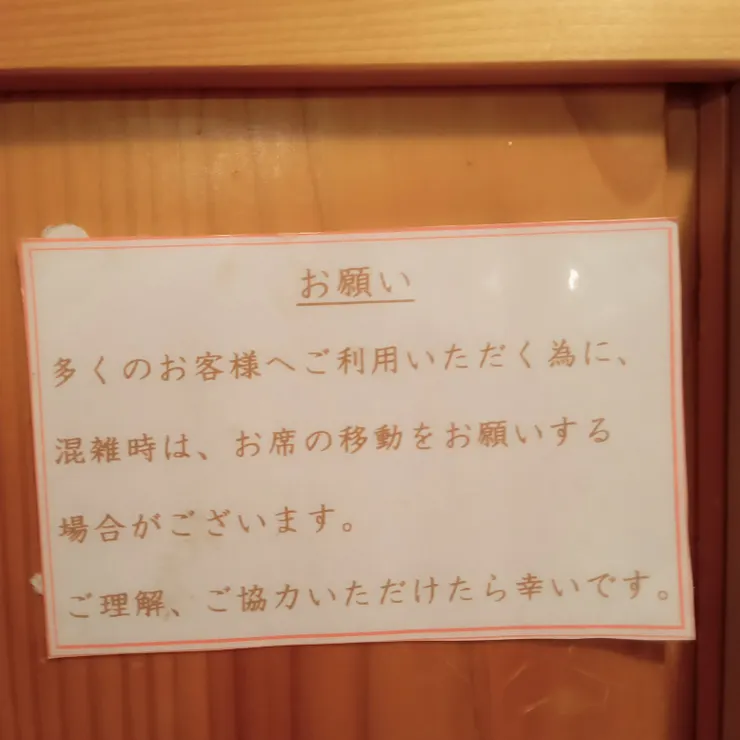 お願い
多くのお客様へご利用いただく為に、
混雑時は、お席の移動をお願いする
場合がございます。
ご理解、ご協力いただけたら幸いです。